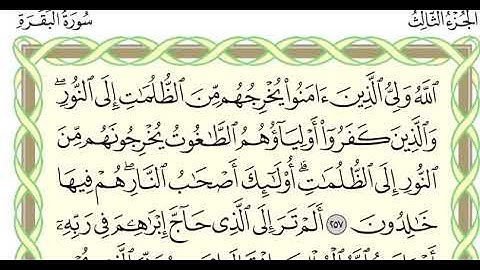 الجُزْءُ الثَّالِثُ
سُورَةُ البَقَرَةِ
ٱللَّهُ وَلِيُّ ٱلَّذِينَ ءَامَنُوا۟ يُخْرِجُهُم مِّنَ ٱلظُّلُمَٰتِ إِلَى ٱلنُّورِ ۖ
وَٱلَّذِينَ كَفَرُوٓا۟ أَوْلِيَآؤُهُمُ ٱلطَّٰغُوتُ يُخْرِجُونَهُم مِّنَ
ٱلنُّورِ إِلَى ٱلظُّلُمَٰتِ ۗ أُو۟لَٰٓئِكَ أَصْحَٰبُ ٱلنَّارِ ۖ هُمْ فِيهَا
خَٰلِدُونَ ٢٥٧ أَلَمْ تَرَ إِلَى ٱلَّذِى حَآجَّ إِبْرَٰهِۦمَ فِى رَبِّهِۦٓ